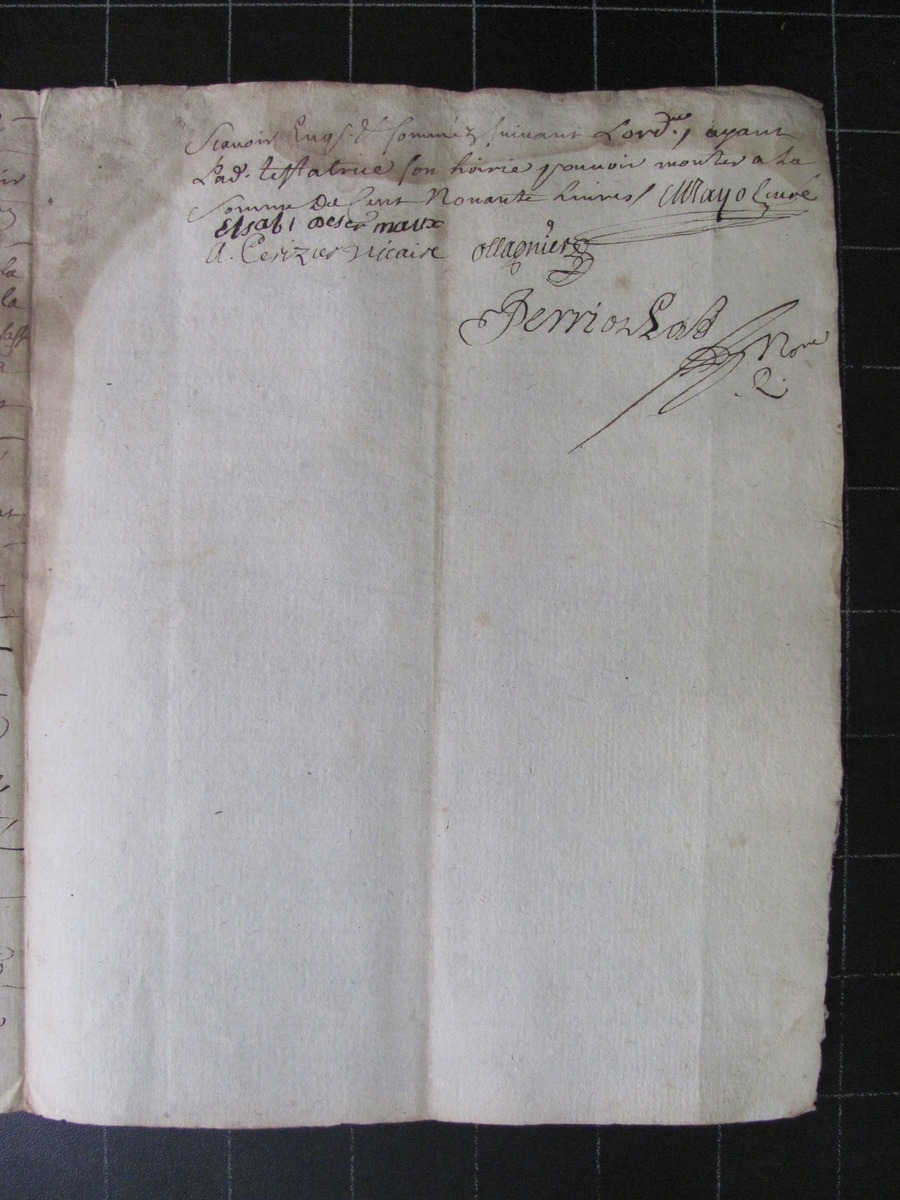 Scavoir Enqs. & sommés suivant Lord.ce, ayant
Lad. testatrice son hoirie pouvoir monter a la
somme De Cent Nonante Livres / Mayol curé
Elsabt Desermaux
A. Cerizier Vicaire ollagnier
Perrion
Nore
R.